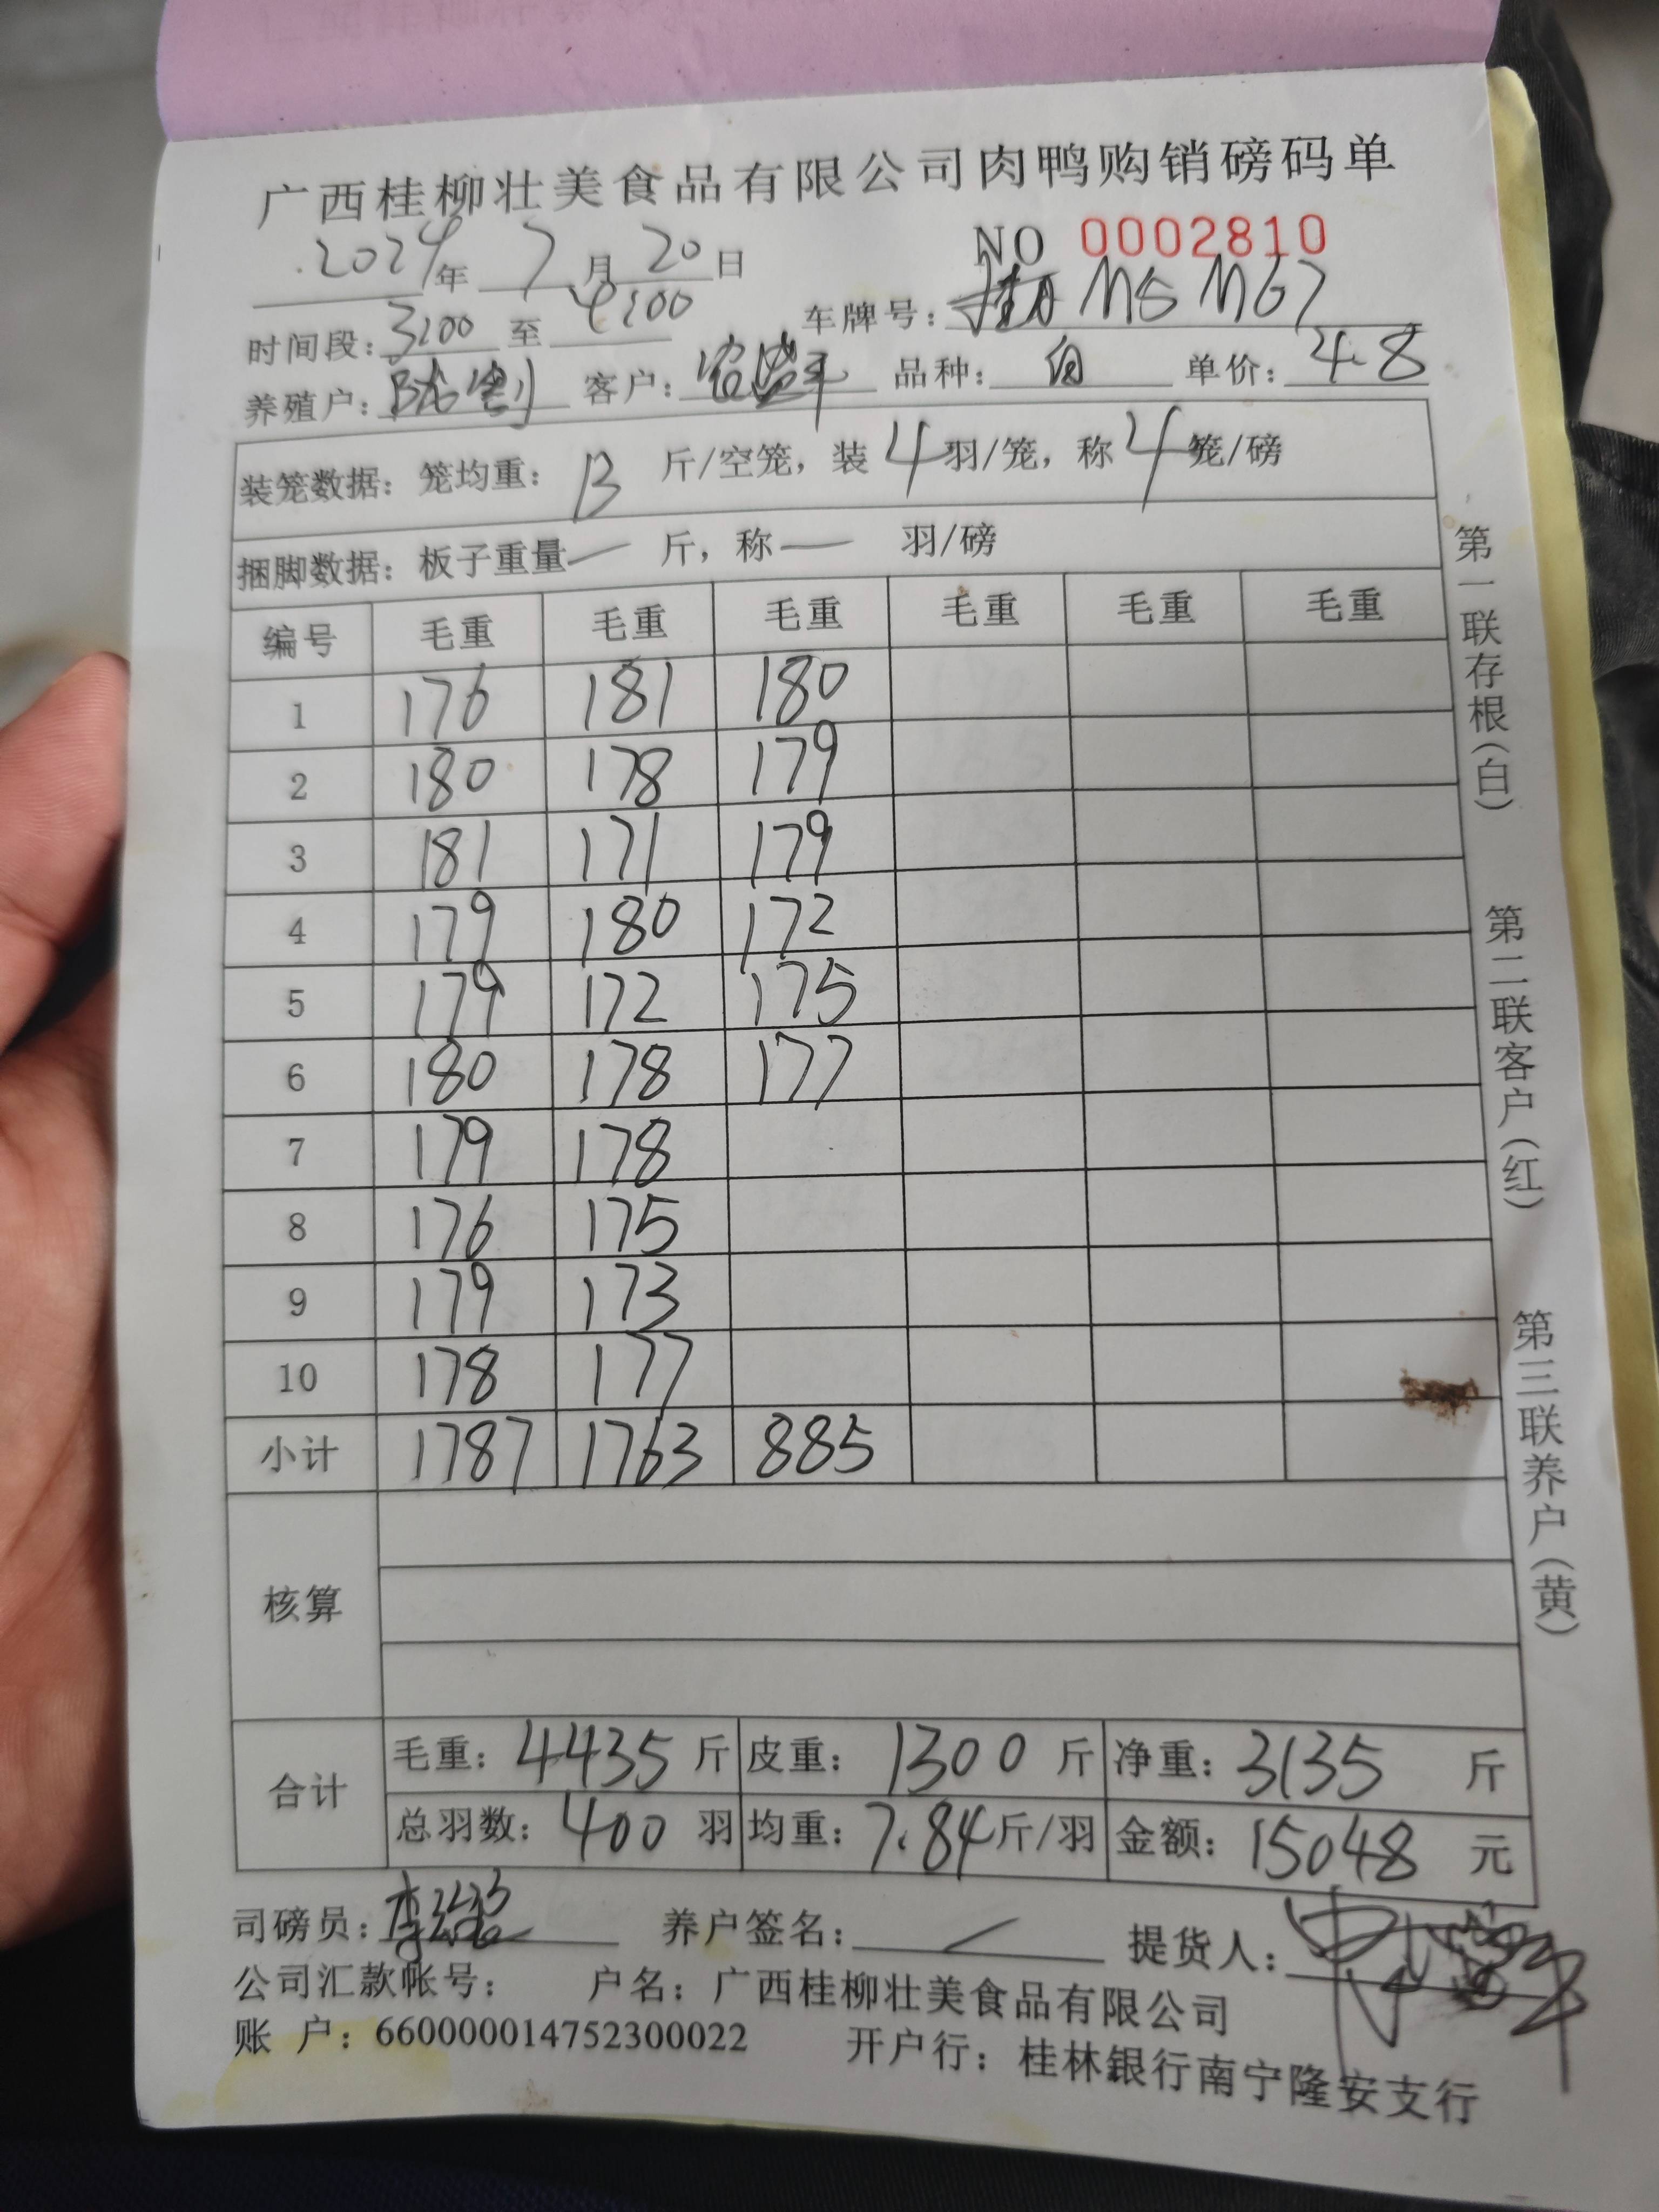 广西桂柳壮美食品有限公司肉鸭购销磅码单
2024年 7月 20日 NO 0002810
时间段：3:00 至 4:00 车牌号：
养殖户： 客户： 品种：白 单价：4.8
装笼数据：笼均重：13 斤/空笼，装 4 羽/笼，称 4 笼/磅
捆脚数据：板子重量— 斤，称— 羽/磅
编号 毛重 毛重 毛重 毛重 毛重 毛重
1 176 181 180
2 180 178 179
3 181 171 179
4 179 180 172
5 179 172 175
6 180 178 177
7 179 178
8 176 175
9 179 173
10 178 177
小计 1787 1763 885
核算
合计 毛重：4435 斤 皮重：1300 斤 净重：3135 斤
总羽数：400 羽 均重：7.84斤/羽 金额：15048 元
司磅员： 养户签名： 提货人：
公司汇款帐号： 户名：广西桂柳壮美食品有限公司
账 户：660000014752300022 开户行：桂林银行南宁隆安支行
第一联存根（白） 第二联客户（红） 第三联养户（黄）